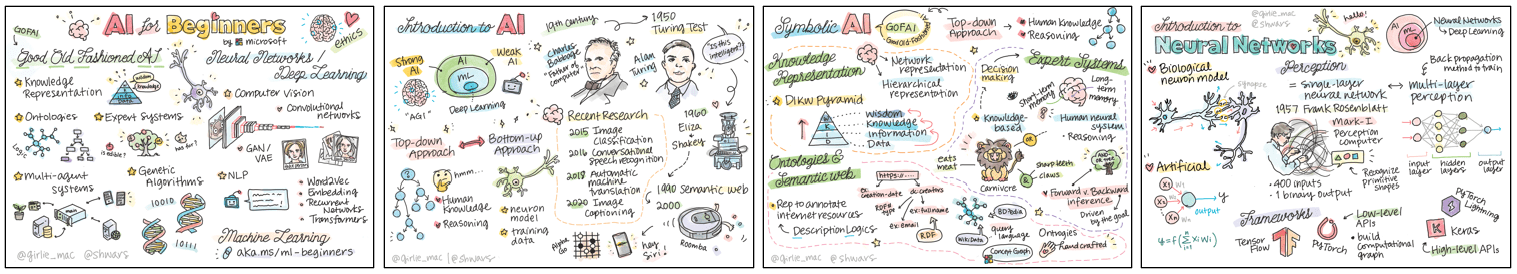 AI for Beginners
by microsoft
GOFAI
ethics
Good Old Fashioned AI
Knowledge
Representation
Wisdom
Knowledge
INFO
DATA
Ontologies
Logic
Expert Systems
is edible?
has fur?
Multi-agent
systems
Genetic
Algorithms
10010
10111
Neural Networks /
Deep Learning
Computer vision
Convolutional
networks
GAN/
VAE
NLP
Word2Vec
Embedding
Recurrent
Networks
Transformers
Machine Learning
aka.ms/ml-beginners
@girlie_mac @shwars
Introduction to AI
Strong
AI
"AGI"
AI
ML
Deep Learning
Weak
AI
19th century
Charles
Babbage
Father of
computer
1950
Turing Test
Alan
Turing
Is this
intelligent?
Top-down
Approach
Bottom-up
Approach
hmm...
Human
Knowledge
Reasoning
neuron
model
training
data
Recent Research
2015 Image
Classification
2016 Conversational
Speech recognition
2018 Automatic
machine
translation
2020 Image
Captioning
1960
Eliza
Shakey
1990 Semantic web
2000
Roomba
Alpha
Go
hey
Siri!
@girlie_mac | @shwars
Symbolic AI
GOFAI
Good Old-Fashioned AI
Top-down
Approach
Human Knowledge
Reasoning
Knowledge
Representation
Network
representation
Hierarchical
representation
DIKW Pyramid
W
K
I
D
Wisdom
Knowledge
Information
Data
Decision
making
Expert Systems
Short-term
memory
Long-
term
memory
Knowledge-
based
Human neural
system
Reasoning
OR
eats
meat
sharp teeth
claws
Carnivore
Forward v. Backward
inference
Driven
by the goal
Ontologies &
Semantic web
Rep to annotate
internet resources
Description Logics
https://...
dc:
creation-date
dc:creators
RDF
ex:fullname
ex:email
RDF
DBPedia
query
language
WikiData
Concept Graph
Ontologies
handcrafted
@girlie_mac @shwars
Introduction to
Neural Networks
@girlie_mac
@shwars
hello!
AI
ML
Neural Networks
Deep Learning
Biological
neuron model
Synapse
Artificial
X1
X2
Xn
W1
Wn
y
output
Perception
= single-layer
neural network
multi-layer
perception
Back propagation
method to train
1957 Frank Rosenblatt
Mark-I
Perception
computer
400 inputs
1 binary output
Recognize
primitive
shapes
input
layer
hidden
layers
output
layer
Frameworks
Tensor
Flow
PyTorch
Low-level
APIs
build
Computational
graph
PyTorch
Lightning
Keras
High-level APIs